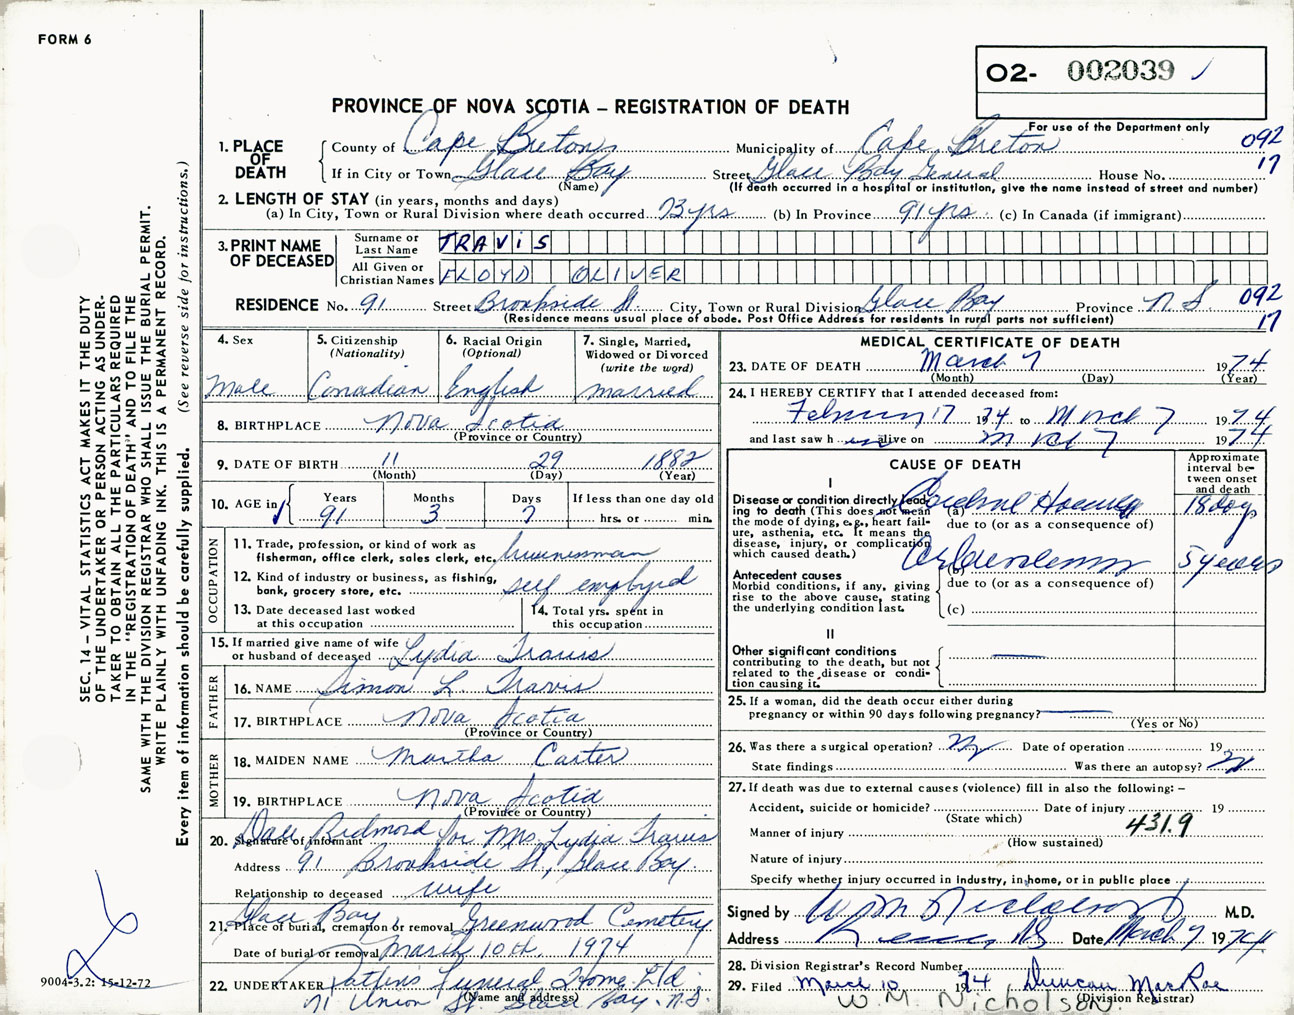 FORM 6
O2- 002039
PROVINCE OF NOVA SCOTIA – REGISTRATION OF DEATH
For use of the Department only
1. PLACE OF DEATH
County of Cape Breton Municipality of Cape Breton 092
If in City or Town Glace Bay Street Glace Bay General House No. 17
(Name) (If death occurred in a hospital or institution, give the name instead of street and number)
2. LENGTH OF STAY (in years, months and days)
(a) In City, Town or Rural Division where death occurred 73 yrs (b) In Province 91 yrs (c) In Canada (if immigrant)
3. PRINT NAME OF DECEASED
Surname or Last Name TRAVIS
All Given or Christian Names FLOYD OLIVER
RESIDENCE No. 91 Street Brookside St. City, Town or Rural Division Glace Bay Province N.S. 092
(Residence means usual place of abode. Post Office Address for residents in rural parts not sufficient) 17
4. Sex
Male
5. Citizenship
(Nationality)
Canadian
6. Racial Origin
(Optional)
English
7. Single, Married, Widowed or Divorced
(write the word)
married
8. BIRTHPLACE Nova Scotia
(Province or Country)
9. DATE OF BIRTH 11 29 1882
(Month) (Day) (Year)
10. AGE in
Years Months Days If less than one day old
91 3 7 hrs. or min.
OCCUPATION
11. Trade, profession, or kind of work as
fisherman, office clerk, sales clerk, etc.
12. Kind of industry or business, as fishing,
bank, grocery store, etc. self employed
13. Date deceased last worked
at this occupation
14. Total yrs. spent in
this occupation
15. If married give name of wife
or husband of deceased Lydia Travis
FATHER
16. NAME Simon L. Travis
17. BIRTHPLACE Nova Scotia
(Province or Country)
MOTHER
18. MAIDEN NAME Martha Carter
19. BIRTHPLACE Nova Scotia
(Province or Country)
20. Signature of informant Dale Redmond for Mrs Lydia Travis
Address 91 Brookside St., Glace Bay.
Relationship to deceased wife
21. Place of burial, cremation or removal Glace Bay, Greenwood Cemetery
Date of burial or removal March 10th, 1974
22. UNDERTAKER Patten Funeral Home Ltd
71 Union St. Glace Bay, N.S.
(Name and address)
MEDICAL CERTIFICATE OF DEATH
23. DATE OF DEATH March 7 1974
(Month) (Day) (Year)
24. I HEREBY CERTIFY that I attended deceased from:
February 17 1974 to March 7 1974
and last saw h im alive on March 7 1974
CAUSE OF DEATH
Approximate interval between onset and death
I
Disease or condition directly leading to death (This does not mean
the mode of dying, e.g., heart failure, asthenia, etc. It means the
disease, injury, or complication
which caused death.)
(a) 18 days
due to (or as a consequence of)
(b) 5 years
Antecedent causes
Morbid conditions, if any, giving
rise to the above cause, stating
the underlying condition last.
due to (or as a consequence of)
(c)
II
Other significant conditions
contributing to the death, but not
related to the disease or condition causing it.
25. If a woman, did the death occur either during
pregnancy or within 90 days following pregnancy?
(Yes or No)
26. Was there a surgical operation? No Date of operation 19
State findings Was there an autopsy? No
27. If death was due to external causes (violence) fill in also the following: –
Accident, suicide or homicide? Date of injury 19
(State which)
431.9
Manner of injury
(How sustained)
Nature of injury
Specify whether injury occurred in industry, in home, or in public place
Signed by W M Nicholson M.D.
Address NS Date March 7 1974
28. Division Registrar's Record Number
29. Filed March 10 1974 Duncan MacRae
(Division Registrar)
W.M. Nicholson.
SEC. 14 – VITAL STATISTICS ACT MAKES IT THE DUTY
OF THE UNDERTAKER OR PERSON ACTING AS UNDER-
TAKER TO OBTAIN ALL THE PARTICULARS REQUIRED
IN THE "REGISTRATION OF DEATH" AND TO FILE THE
SAME WITH THE DIVISION REGISTRAR WHO SHALL ISSUE THE BURIAL PERMIT.
WRITE PLAINLY WITH UNFADING INK. THIS IS A PERMANENT RECORD.
Every item of information should be carefully supplied. (See reverse side for instructions.)
9004-3.2: 15-12-72